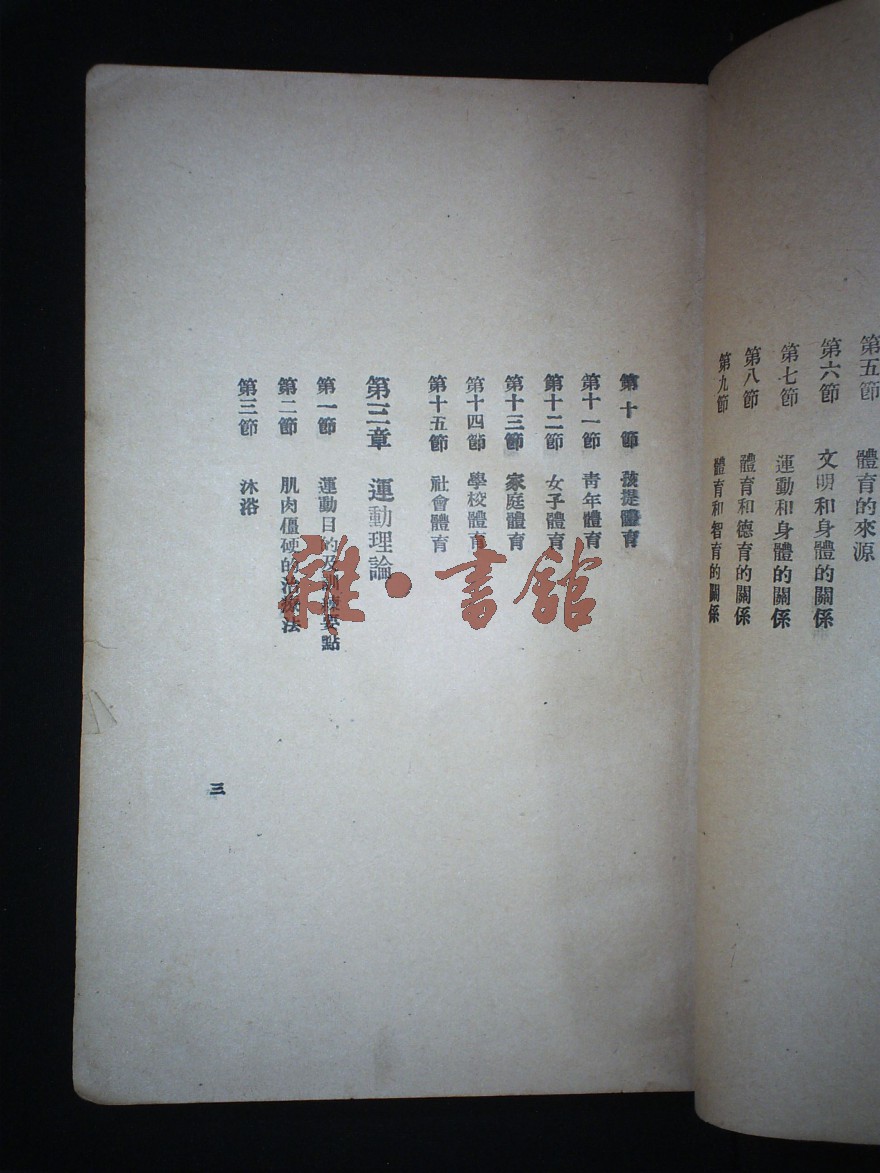 第五節　體育的來源
第六節　文明和身體的關係
第七節　運動和身體的關係
第八節　體育和德育的關係
第九節　體育和智育的關係
第十節　孩提體育
第十一節　靑年體育
第十二節　女子體育
第十三節　家庭體育
第十四節　學校體育
第十五節　社會體育
第三章　運動理論
第一節　運動目的及訓練要點
第二節　肌肉僵硬的治療法
第三節　沐浴
三
雜·書館